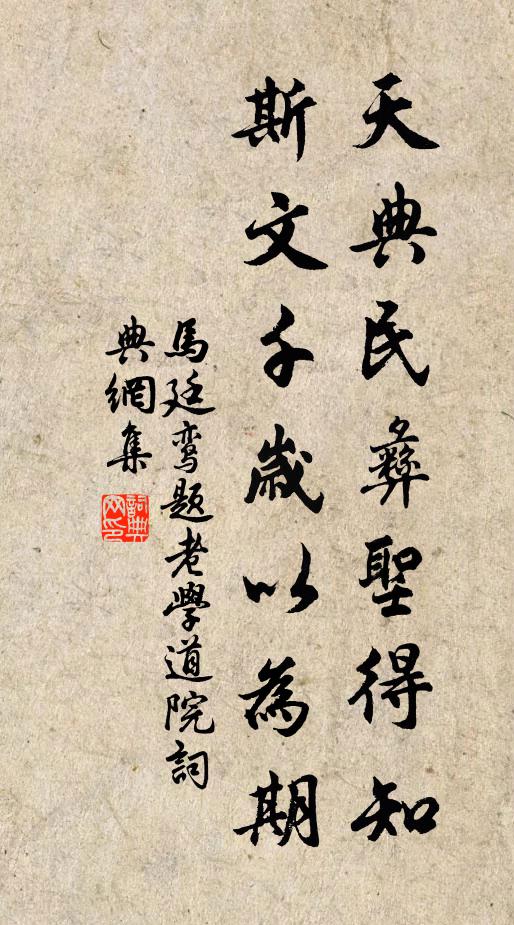 天典民彝聖得知
斯文千歲以為期
馬廷鸞題老學道院詞
典網集
詞典網印